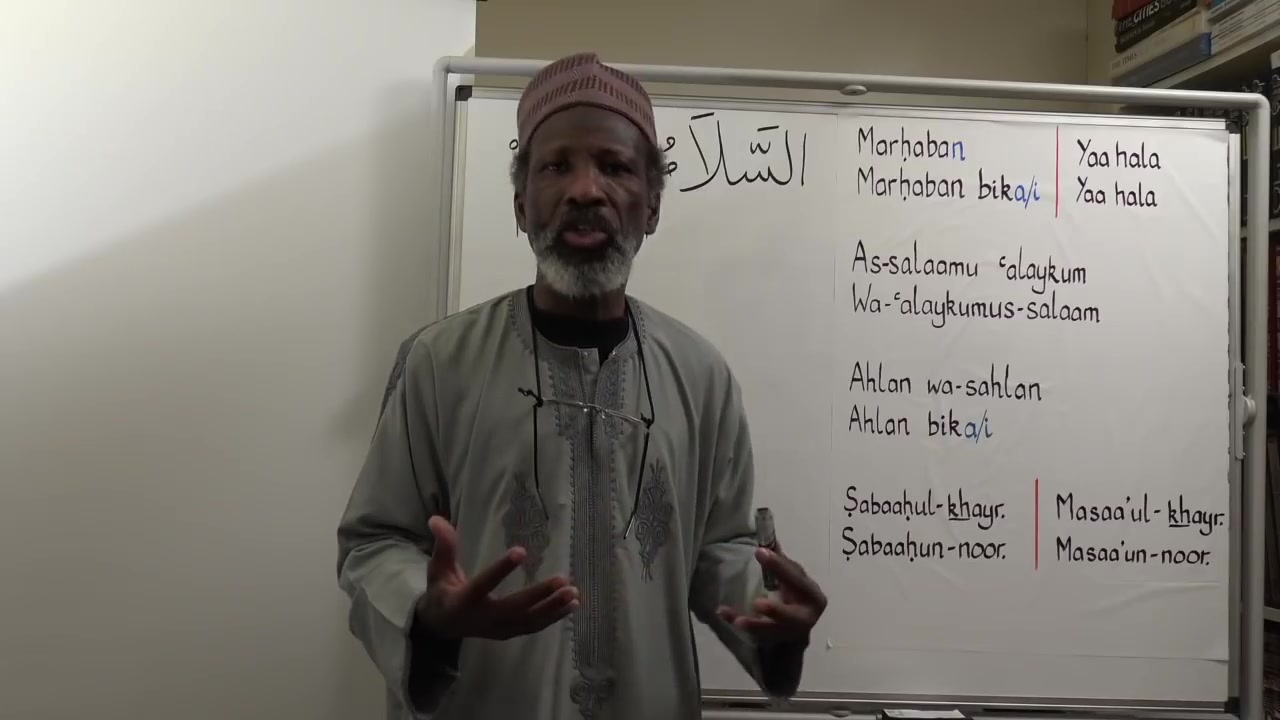 السَّلاَ
Marḥaban
Marḥaban bika/i
Yaa hala
Yaa hala
As-salaamu ʿalaykum
Wa-ʿalaykumus-salaam
Ahlan wa-sahlan
Ahlan bika/i
Ṣabaaḥul-khayr.
Ṣabaaḥun-noor.
Masaa'ul-khayr.
Masaa'un-noor.
THE CITIES
THE TIMES